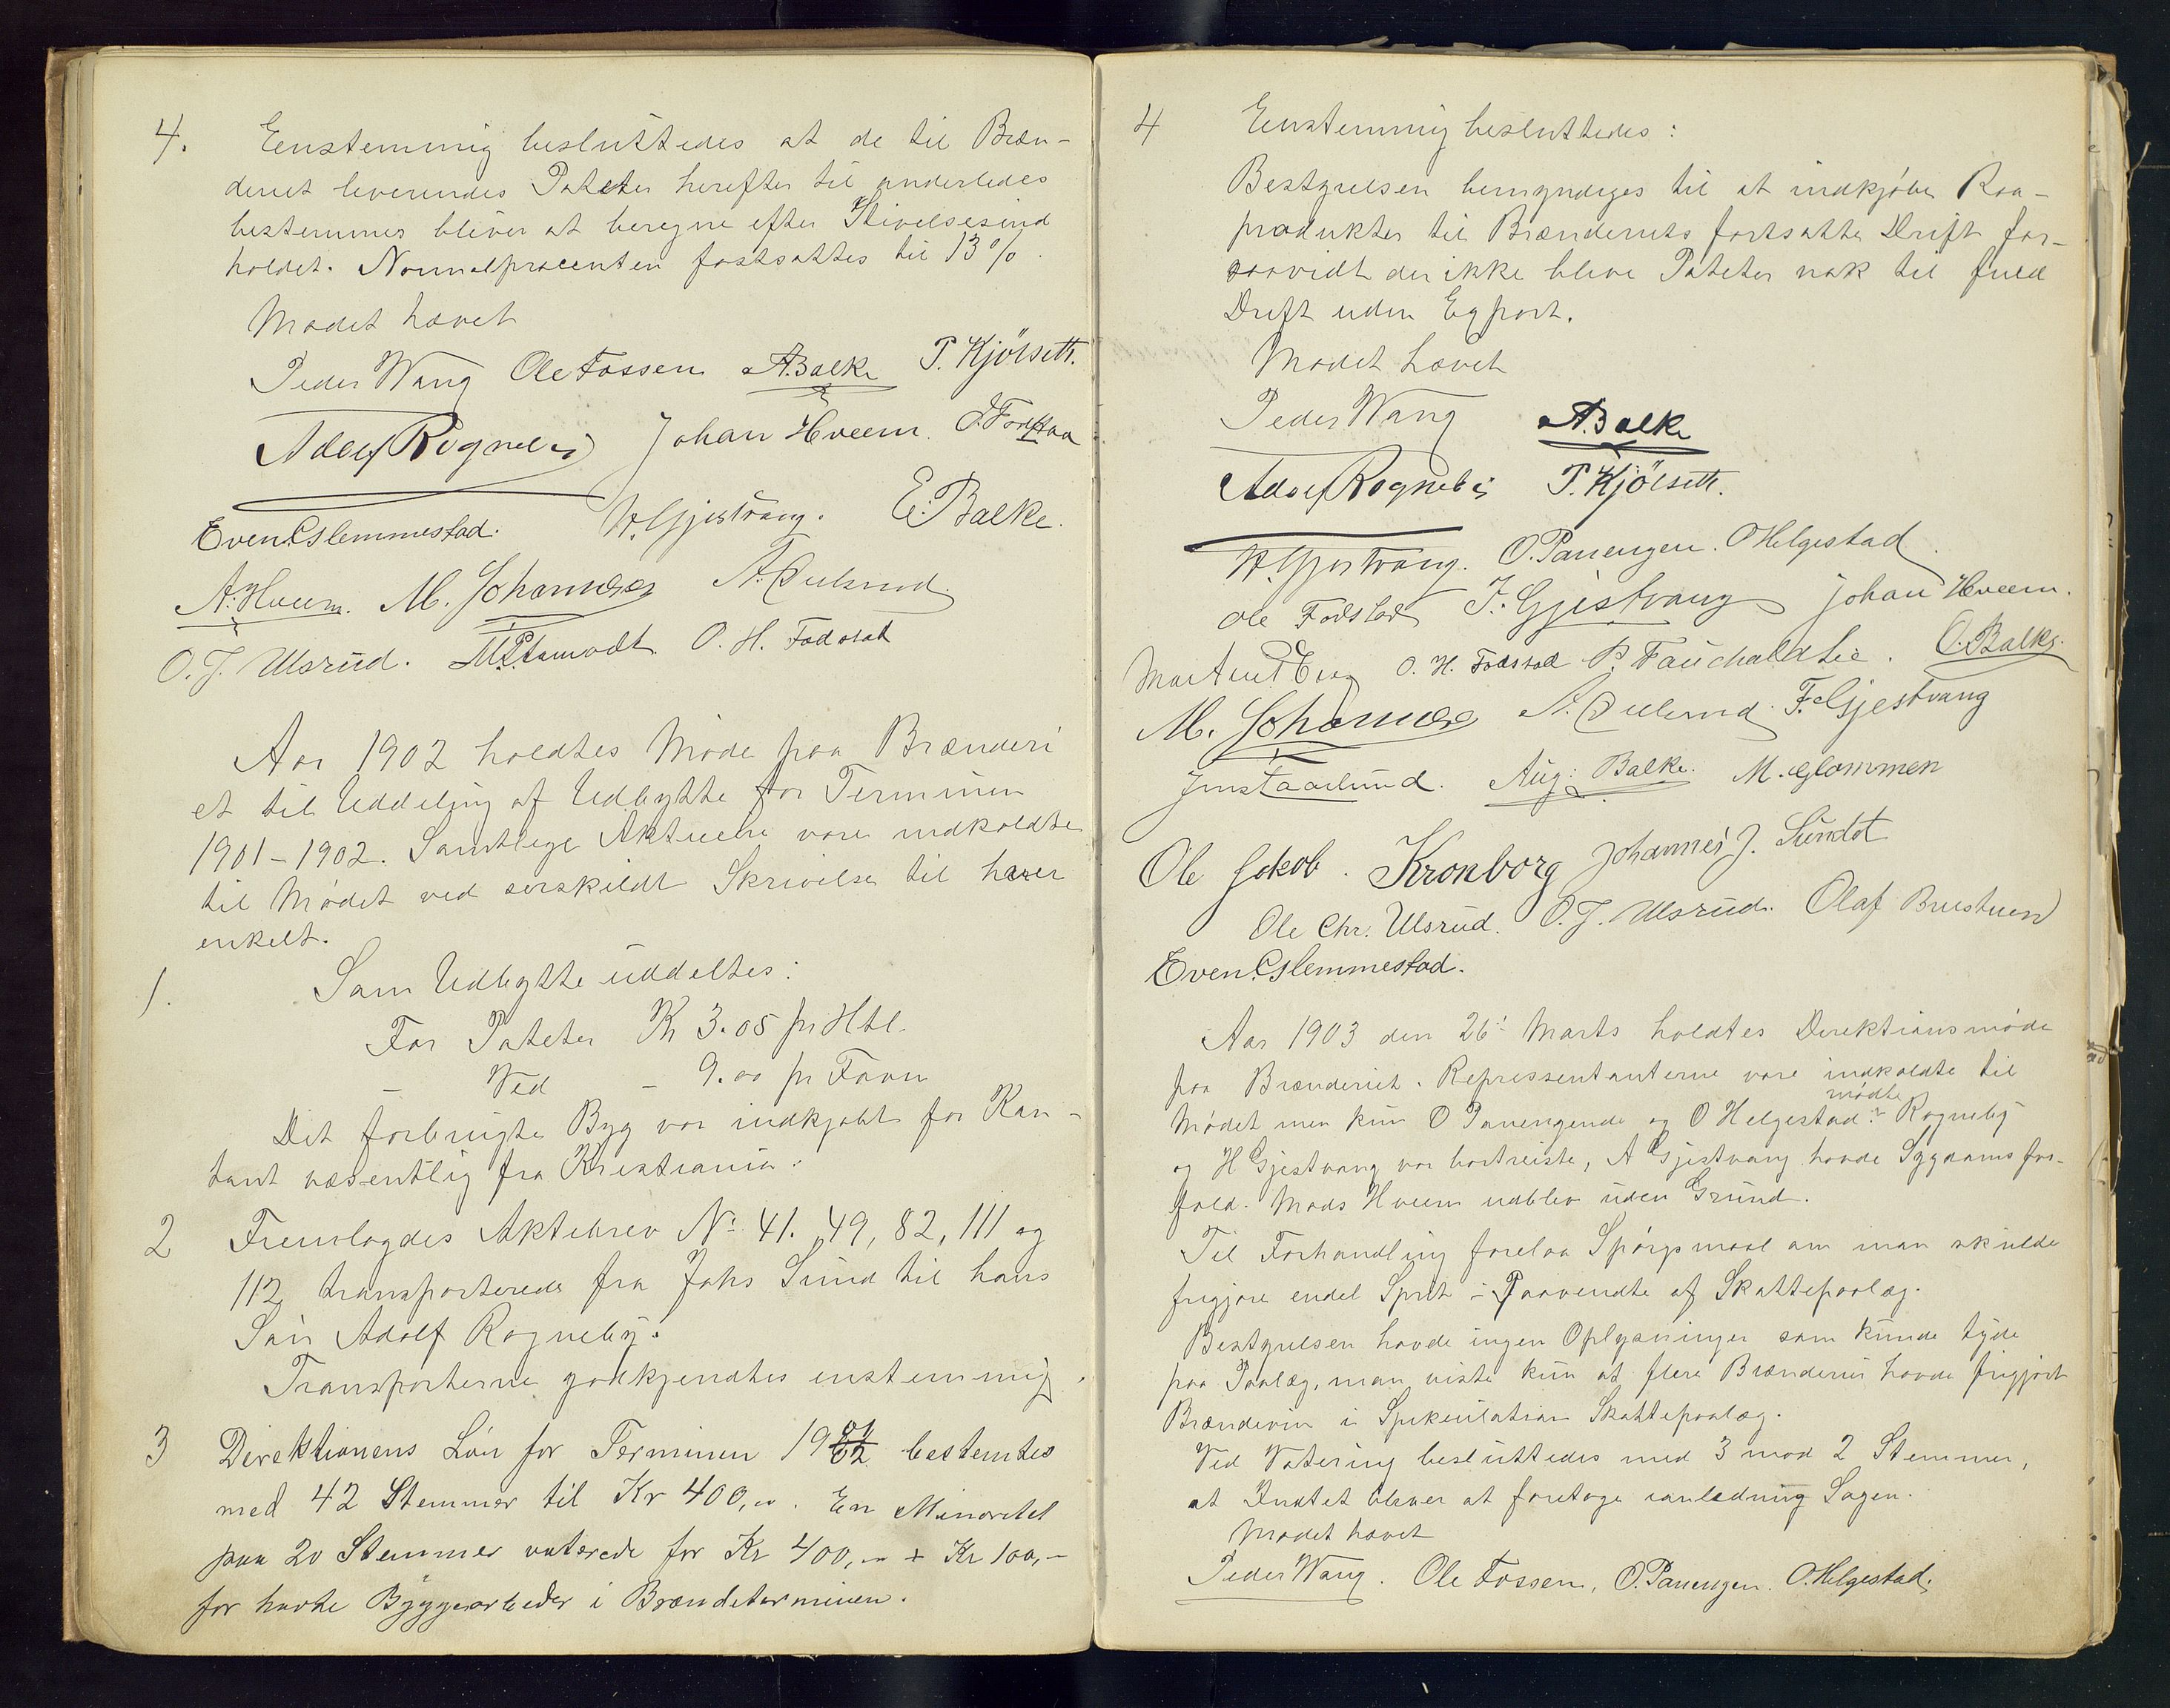 4. Eenstemmig besluttedes at de til Bræn-
deriet leverendes Poteter herefter til anderledes
bestemmes bliver at beregne efter Stivelsesind
holdet. Normalprocenten fastsattes til 13%.
Mødet hævet
Peder Wang Ole Fossen A. Balke P. Kjölseth.
Adolf Rogneby Johan Hveem. O. Fodstad
Even C. Slemmestad. H. Gjestvang. E. Balke.
A. Hveem. M. Johansen
O. J. Ulsrud. O. H. Fodstad
Aar 1902 holdtes Møde paa Brænderi
et til Uddeling af Udbytte for Terminen
1901-1902. Samtlige Aktieeiere vare indkaldte
til Mødet ved særskildt Skrivelse til hver
enkelt.
1. Som Udbytte uddeltes:
For Poteter Kr 3.05 pr Htl.
— Ved — 9.00 pr Favn
Det forbrugte Byg var indkjøbt for Kon-
tant væsentlig fra Kristiania.
2 Fremlagdes Aktiebrev No 41. 49, 82, 111 og
112 transporterede fra Johs Sund til hans
Søn Adolf Rogneby.
Transporterne godkjendtes enstemmig.
3 Direktionens Løn for Terminen 19 01/02 bestemtes
med 42 Stemmer til Kr 400,00. En Minoritet
paa 20 Stemmer voterede for Kr 400,00 + Kr 100,-
for havte Byggearbeider i Brændeterminen.
4 Eenstemmig besluttedes:
Bestyrelsen bemyndiges til at indkjøbe Raa-
produkter til Brænderiets fortsatte Drift for-
saavidt der ikke blive Poteter nok til fuld
Drift uden Export.
Mødet hævet
Peder Wang A. Balke
Adolf Rogneby P. Kjölseth.
H. Gjestvang. O. Panengen. O Helgestad.
Ole Fodstad J. Gjestvang Johan Hveem.
Martin Berg O. H. Fodstad P. Fauchaldlie. O. Balke.
M. Johansen F. Gjestvang
Jens Faarlund. Aug. Balke. M. Glommen
Ole Jakob. Kronborg Johannes J. Sundet
Ole Chr. Ulsrud. O. J. Ulsrud. Olaf Brustuen
Even C. Slemmestad.
Aar 1903 den 26' Marts holdtes Direktionsmøde
paa Brænderiet. Repressentanterne vare indkaldte til
mødte
Mødet men kun O Panengen og O Helgestad. Rogneby
og H Gjestvang var bortreiste, A Gjestvang havde Sygdomsfor-
fald. Mads Hveem udblev uden Grund.
Til Forhandling forelaa Spørgsmaal om man skulde
frigjøre endel Sprit i Paavendte af Skattepaalæg.
Bestyrelsen havde ingen Oplysninger som kunde tyde
paa Paalæg, man viste kun at flere Brænderier havde frigjort
Brændevin i Spekulation Skattepaalæg.
Ved Votering besluttedes med 3 mod 2 Stemmer,
at Intet bliver at foretage ianledning Sagen.
Mødet hævet
Peder Wang. Ole Fossen, O. Panengen. O. Helgestad.